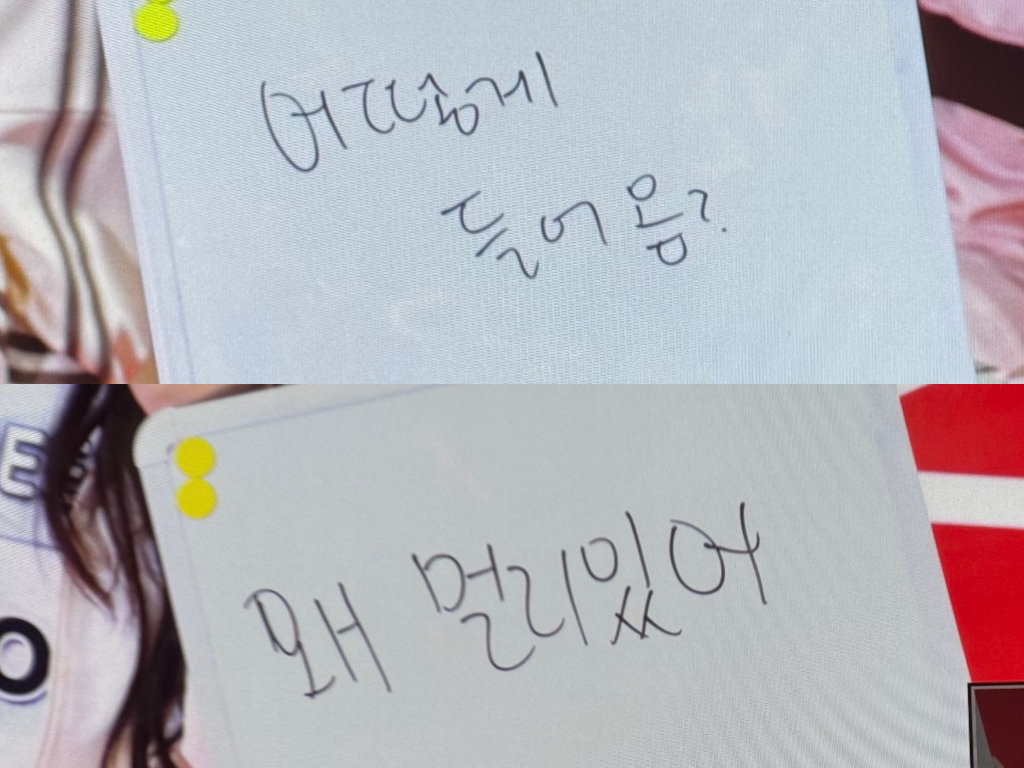 어떻게
들어옴?
E
왜 멀리있어
O